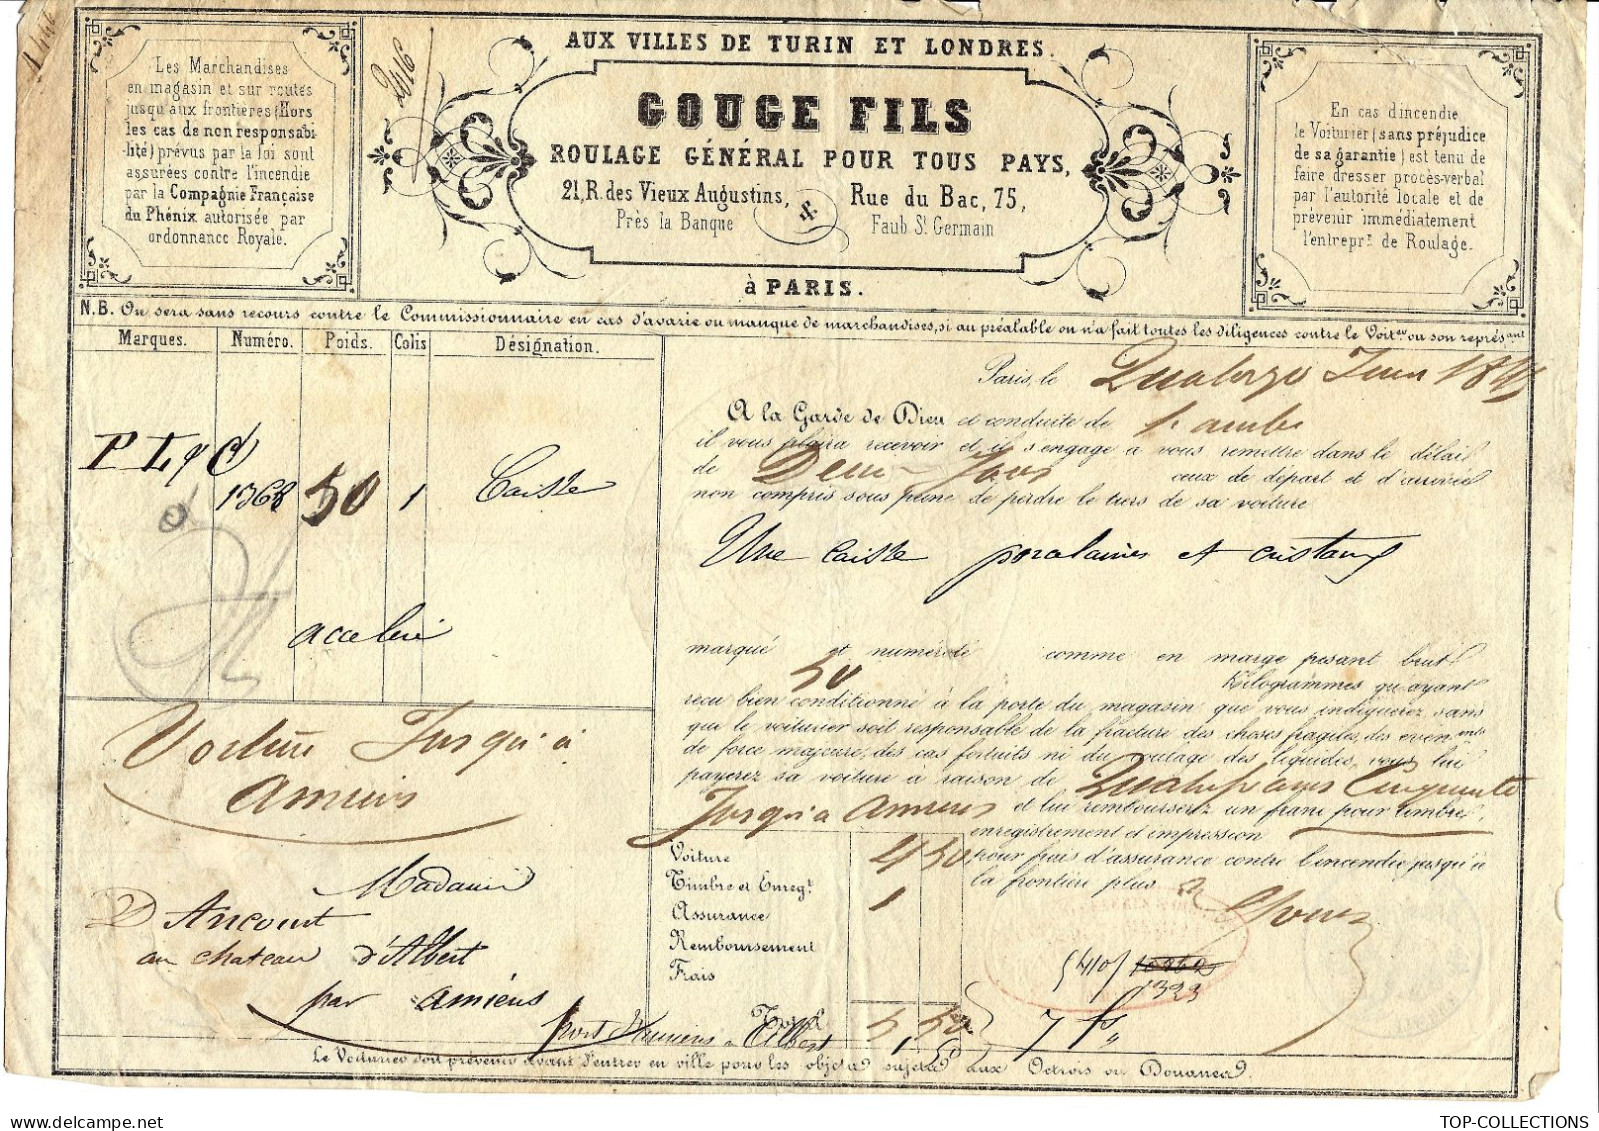 1446
2416
Les Marchandises
en magasin et sur routes
jusqu'aux frontières (Hors
les cas de non responsabi
-lité) prévus par la loi sont
assurées contre l'incendie
par la Compagnie Française
du Phénix autorisée par
ordonnance Royale.
AUX VILLES DE TURIN ET LONDRES.
GOUGE FILS
ROULAGE GÉNÉRAL POUR TOUS PAYS,
21, R. des Vieux Augustins, & Rue du Bac, 75,
Près la Banque Faub St Germain
à PARIS.
En cas d'incendie
le Voiturier (sans préjudice
de sa garantie) est tenu de
faire dresser procès-verbal
par l'autorité locale et de
prévenir immédiatement
l'entrepr.r de Roulage.
N.B. On sera sans recours contre le Commissionnaire en cas d'avarie ou manque de marchandises, si au préalable on n'a fait toutes les diligences contre le Voit.eu ou son représ.ant
Marques. Numéro. Poids. Colis Désignation.
Paris, le Quatorze Juin 18
A la Garde de Dieu et conduite de
il vous plaira recevoir et il s'engage à vous remettre dans le délai
de Deux Jours ceux de départ et d'arrivée
non compris sous peine de perdre le tiers de sa voiture
P L & C
1368 50 1 Caisse
Une caisse porcelaines et cristaux
accéléré
marqué et numéroté comme en marge pesant brut
50 Kilogrammes qu'ayant
reçu bien conditionné à la porte du magasin que vous indiquerez sans
que le voiturier soit responsable de la fracture des choses fragiles, des evenmts
de force majeure, des cas fortuits ni du roulage des liquides, vous lui
payerez sa voiture à raison de Quatre francs Cinquante
Jusqu'à Amiens et lui rembourserez un franc pour timbre,
enregistrement et impression
pour frais d'assurance contre l'incendie jusqu'à
la frontière plus
Voiture Jusqu'à
Amiens
Voiture 4 50
Timbre et Enreg.t 1
Assurance
Remboursement
Frais
Total 5,50
Madame
D'Ancourt
au chateau d'Albert
par Amiens
5410/ 10262
1323
port d'Amiens à Albert
7 f "
Le Voiturier doit prévenir avant d'entrer en ville pour les objets sujets aux Octrois ou Douanes.
TOP-COLLECTIONS